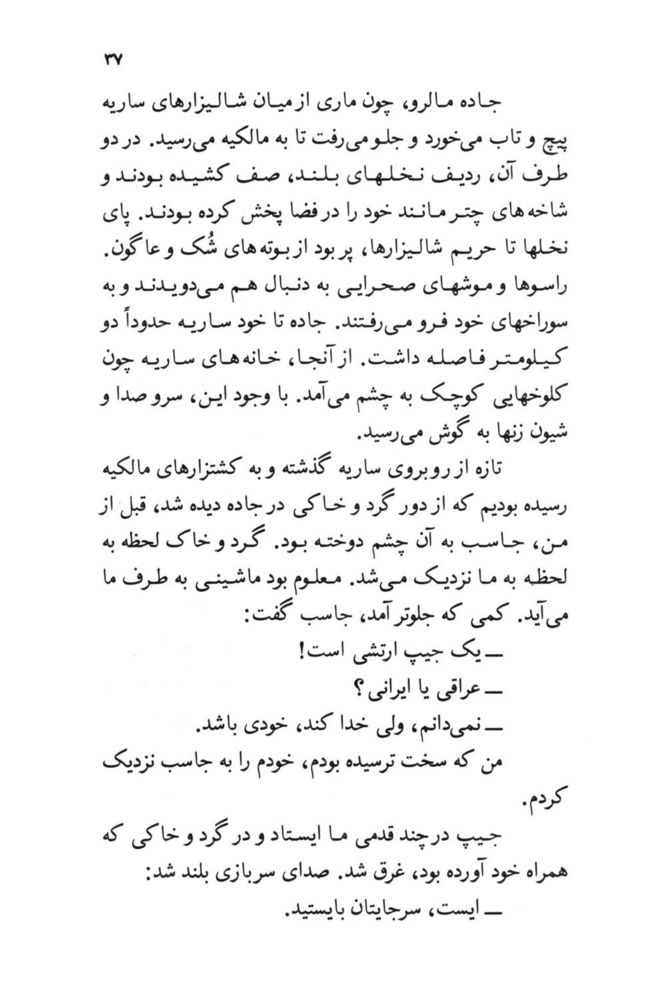 ۳۷
جاده مالرو، چون ماری از میان شالیزارهای ساریه
پیچ و تاب می‌خورد و جلو می‌رفت تا به مالکیه می‌رسید. در دو
طرف آن، ردیف نخلهای بلند، صف کشیده بودند و
شاخه‌های چتر مانند خود را در فضا پخش کرده بودند. پای
نخلها تا حریم شالیزارها، پر بود از بوته‌های شُک و عاگون.
راسوها و موشهای صحرایی به دنبال هم می‌دویدند و به
سوراخهای خود فرو می‌رفتند. جاده تا خود ساریه حدوداً دو
کیلومتر فاصله داشت. از آنجا، خانه‌های ساریه چون
کلوخهایی کوچک به چشم می‌آمد. با وجود این، سر و صدا و
شیون زنها به گوش می‌رسید.
تازه از روبروی ساریه گذشته و به کشتزارهای مالکیه
رسیده بودیم که از دور گرد و خاکی در جاده دیده شد، قبل از
من، جاسب به آن چشم دوخته بود. گرد و خاک لحظه به
لحظه به ما نزدیک می‌شد. معلوم بود ماشینی به طرف ما
می‌آید. کمی که جلوتر آمد، جاسب گفت:
ــ یک جیپ ارتشی است!
ــ عراقی یا ایرانی؟
ــ نمی‌دانم، ولی خدا کند، خودی باشد.
من که سخت ترسیده بودم، خودم را به جاسب نزدیک
کردم.
جیپ در چند قدمی ما ایستاد و در گرد و خاکی که
همراه خود آورده بود، غرق شد. صدای سربازی بلند شد:
ــ ایست، سرجایتان بایستید.